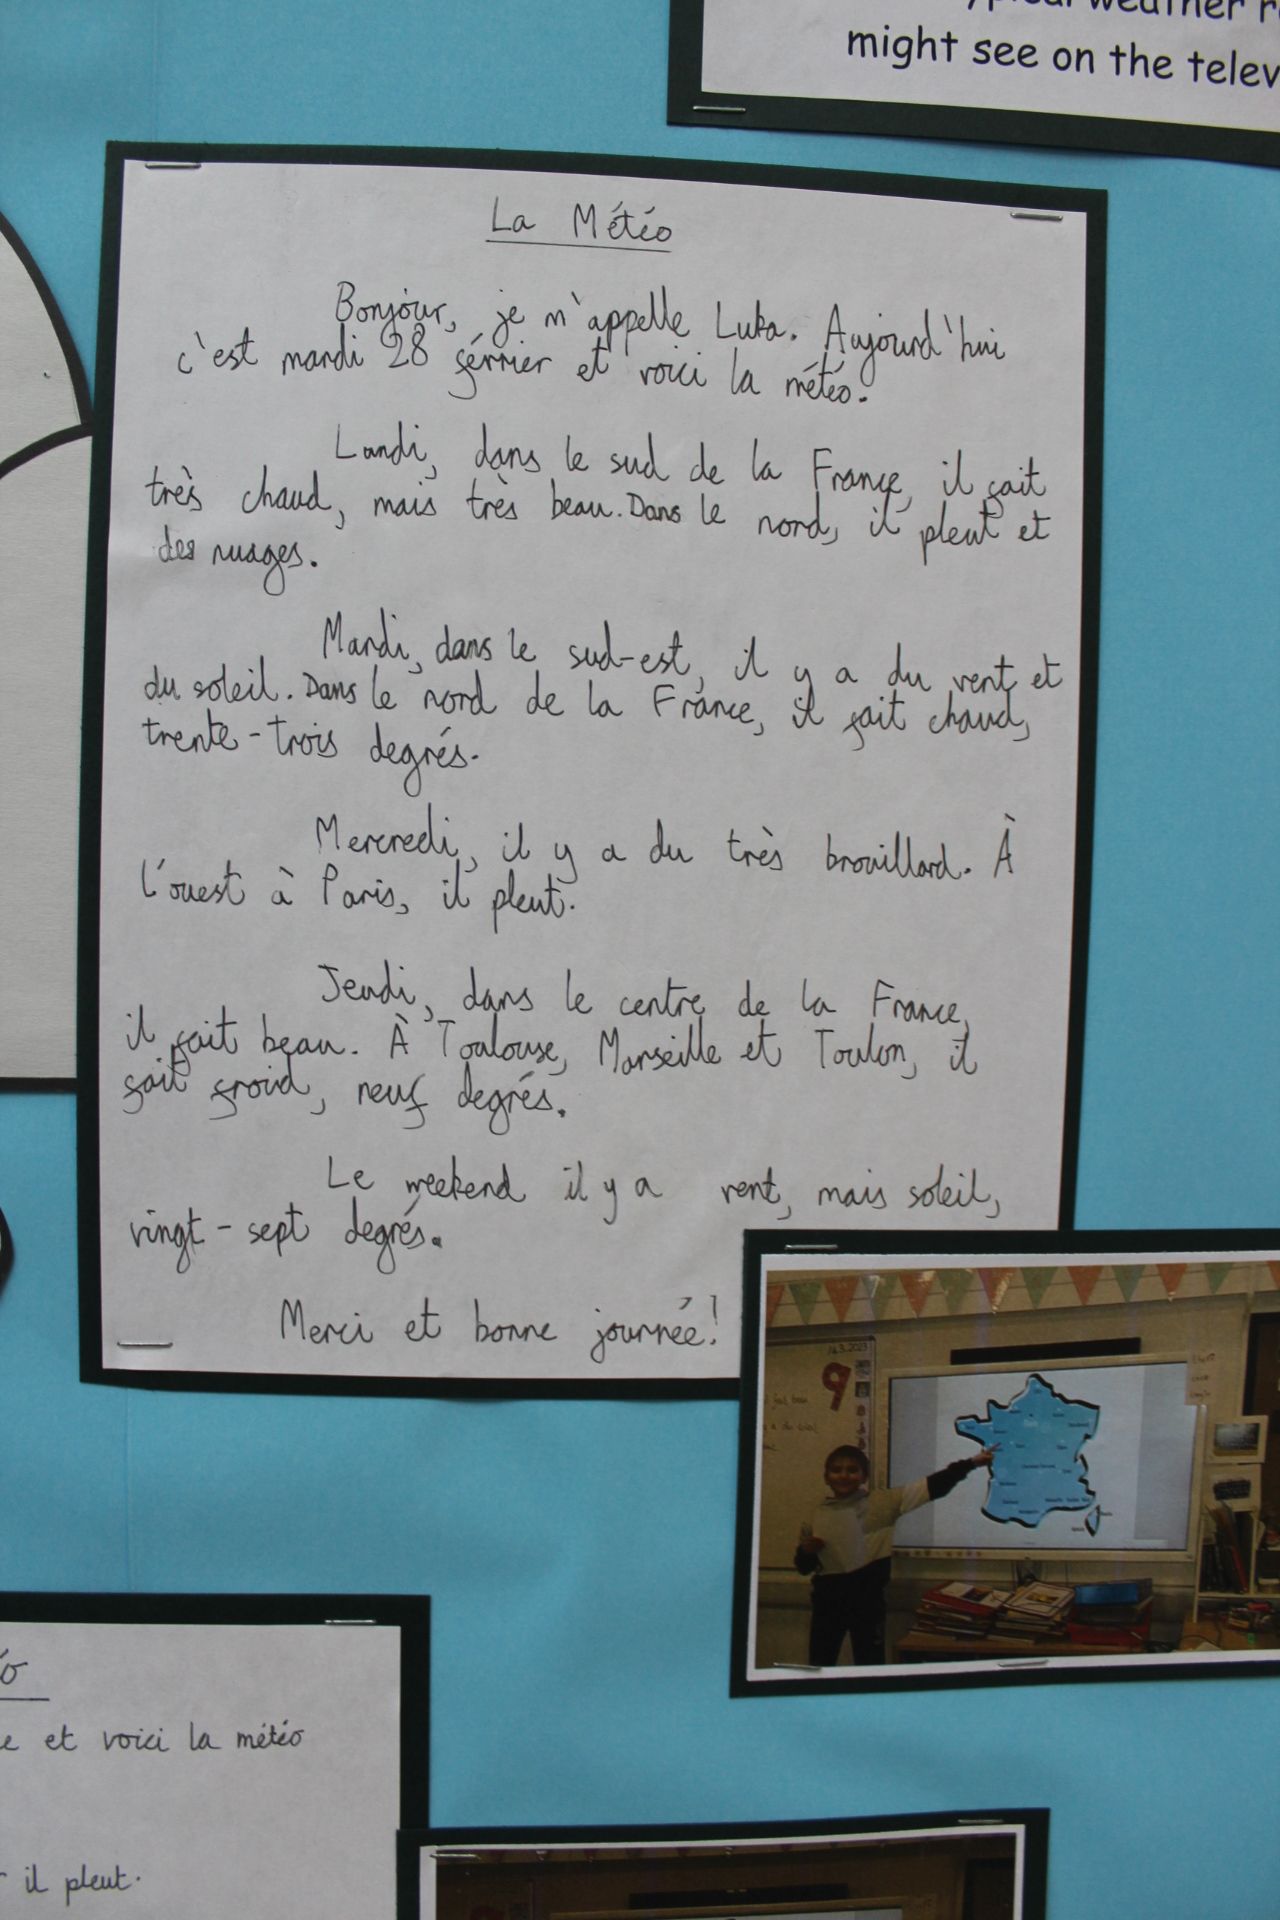 might see on the telev
La Météo
Bonjour, je m'appelle Luka. Aujourd'hui
c'est mardi 28 février et voici la météo.
Lundi, dans le sud de la France, il fait
très chaud, mais très beau. Dans le nord, il pleut et
des nuages.
Mardi, dans le sud-est, il y a du vent et
du soleil. Dans le nord de la France, il fait chaud,
trente-trois degrés.
Mercredi, il y a du très brouillard. À
l'ouest à Paris, il pleut.
Jeudi, dans le centre de la France,
il fait beau. À Toulouse, Marseille et Toulon, il
fait froid, neuf degrés.
Le weekend il y a vent, mais soleil,
vingt-sept degrés.
Merci et bonne journée!
9
et voici la météo
il pleut.